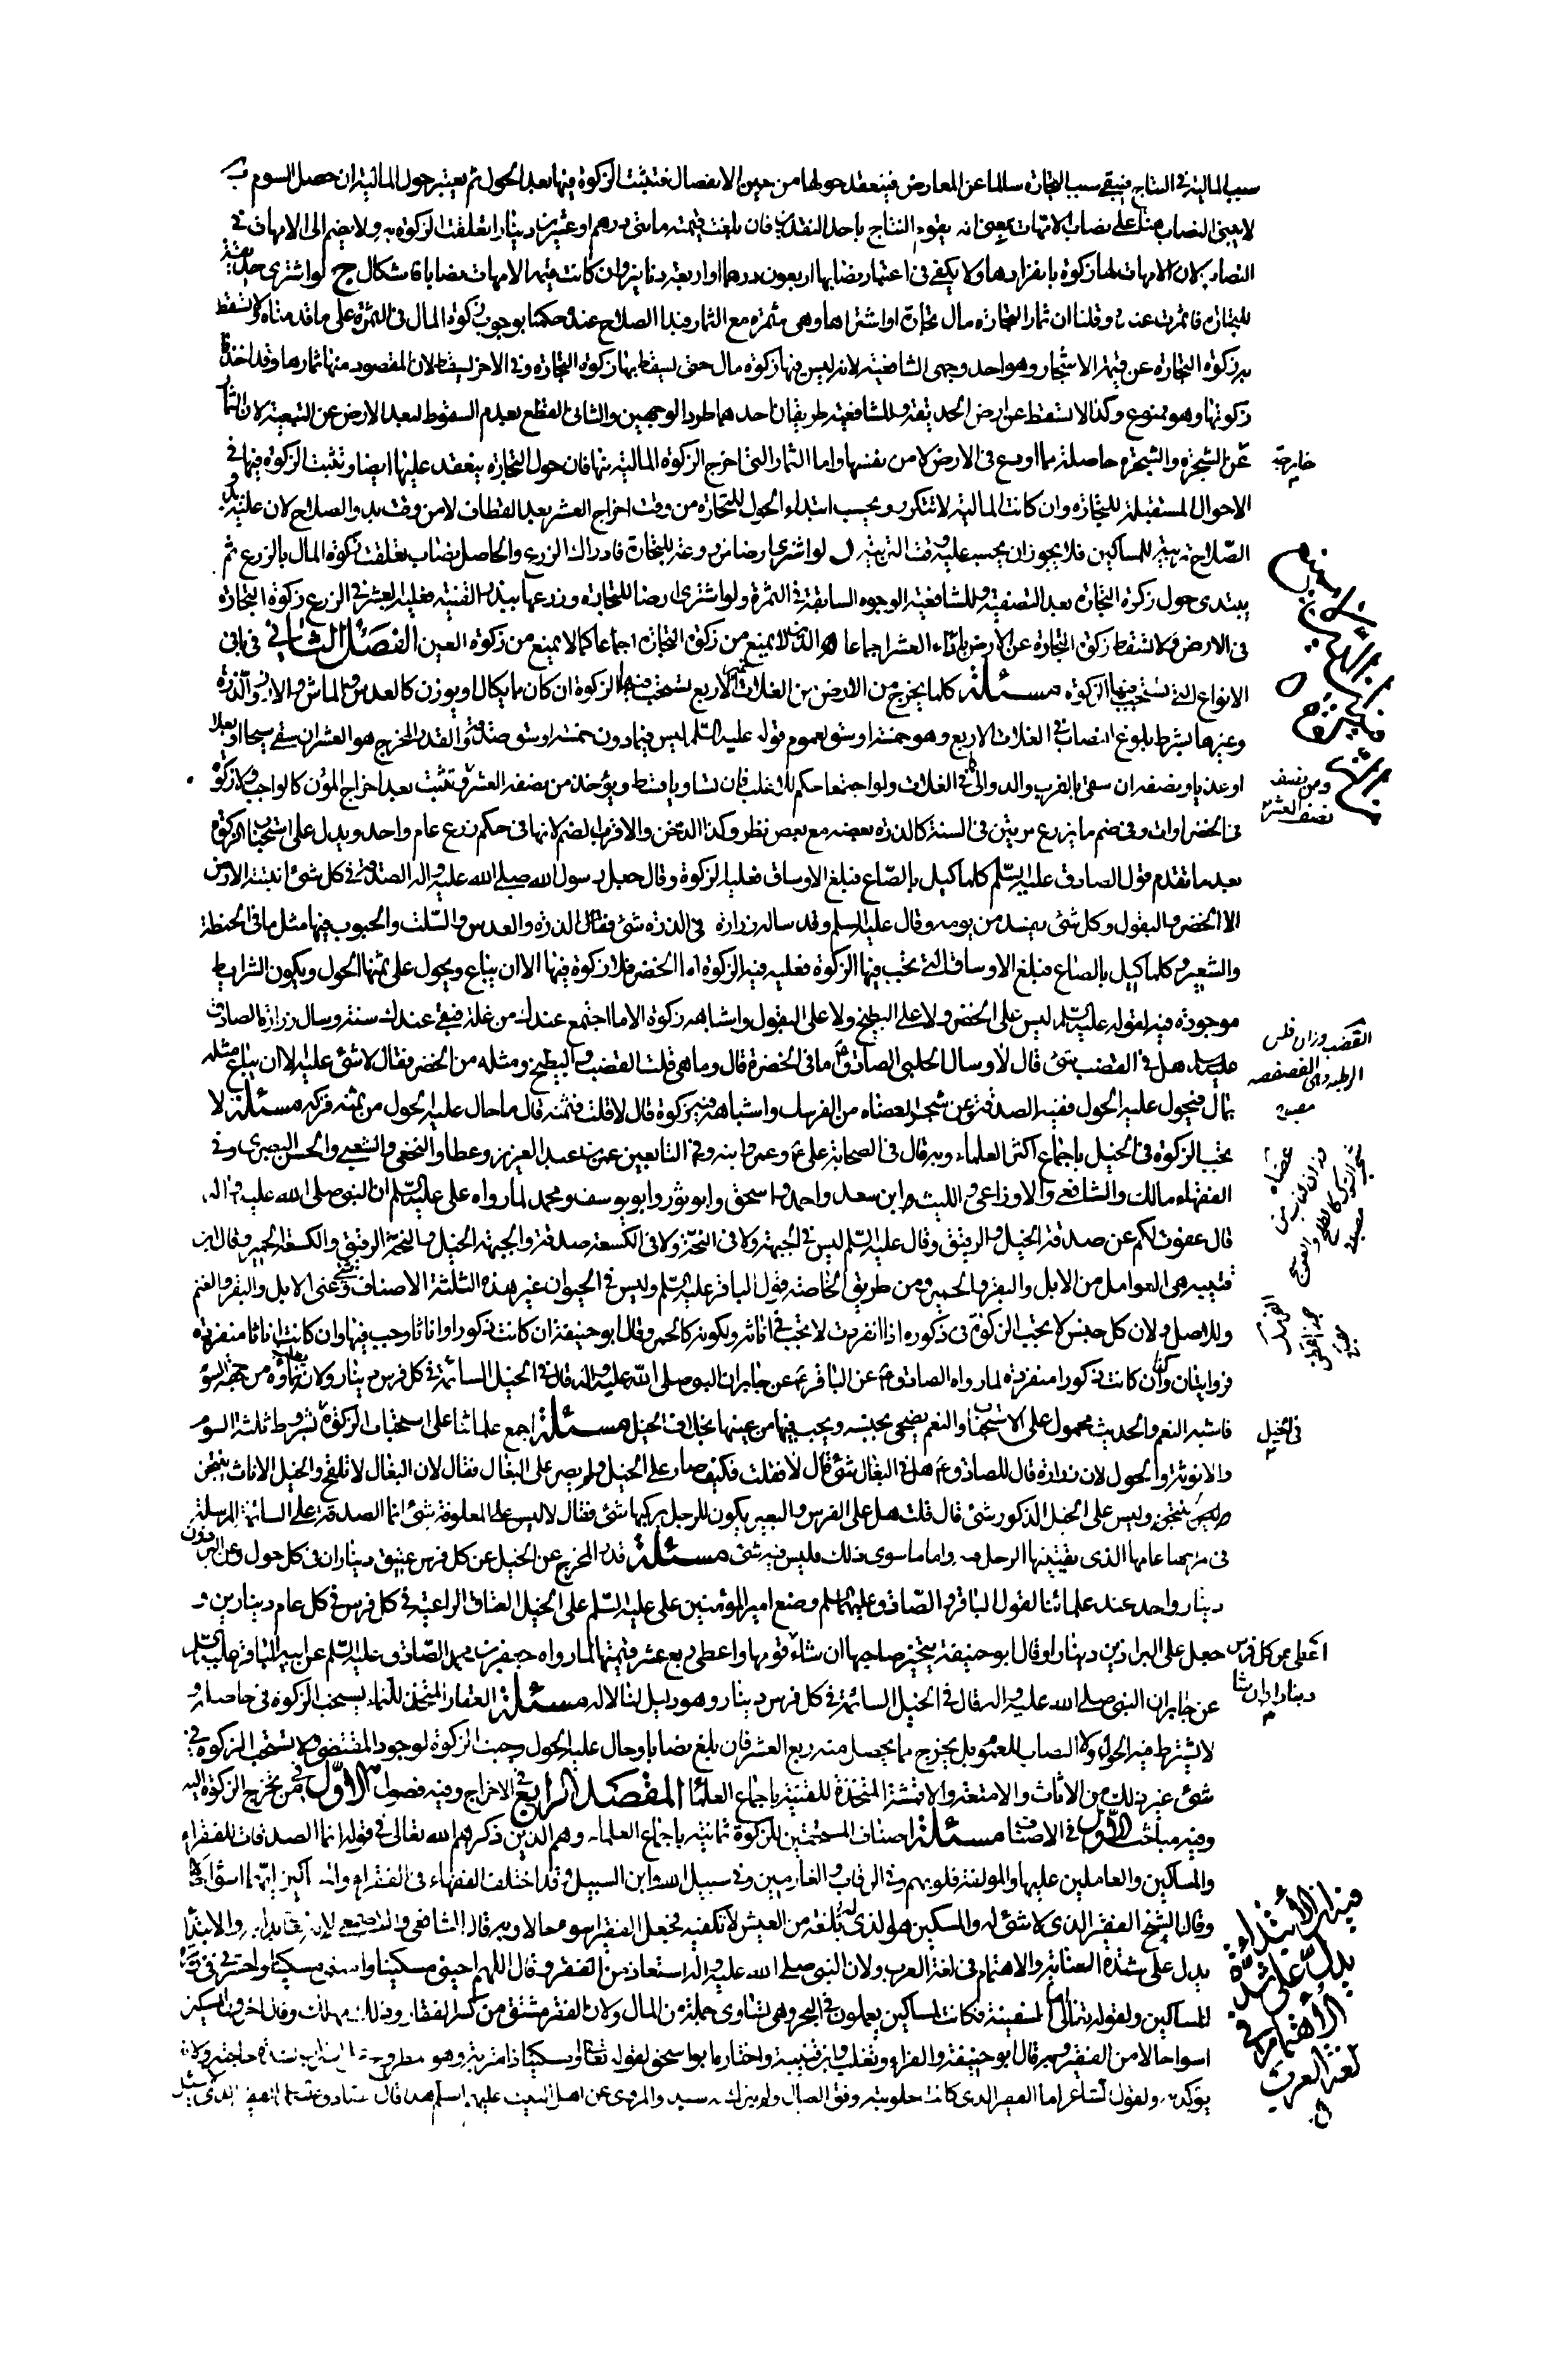 سبب المالية في النتاج فيبقى سبب التجارة سالما عن المعارض فينعقد حولها من حين الانفصال فتثبت الزكوة فيها بعد الحول ثم يعتبر حول المالية ان حصل السوم
لا يعنى النصاب على نصاب الامهات يعنى انه يقوم النتاج باحد النقدين فان بلغت قيمته مائتى درهم او عشرين دينارا تعلقت الزكوة به ولا يضم الى الامهات في
النصاب لان الامهات لها زكوة بانفرادها ولا يكفى فى اعتبار نصابها اربعون درهما او اربعة دنانير وان كانت قيمة الامهات نصابا فاشكال ج لو اشترى حديقة
للتجارة فاثمرت عنده وقلنا ان ثمار التجارة مال تجارة او اشتراها وهى مثمرة مع الثمار وبدا الصلاح عنده حكمنا بوجوب زكوة المال فى الثمرة على ما قدمناه ولا تسقط
به زكوة التجارة عن قيمة الاشجار وهو احد وجهى الشافعية لانه ليس فيها زكوة مال حتى يسقط بها زكوة التجارة وفى الاخر يسقط لان المقصود منها ثمارها وقد اخذنا
زكوتها وهو ممنوع وكذا لا تسقط عن ارض الحديقة وللشافعية طريقان احدهما طرد الوجهين والثانى القطع بعدم السقوط لبعد الارض عن التبعية لان الثمار
خارجة عن الشجرة والشجرة حاصلة مما اودع فى الارض لا من نفسها واما الثمار التى اخرج الزكوة المالية منها فان حول التجارة ينعقد عليها ايضا وتثبت الزكوة فيها فى
الاحوال المستقبلة للتجارة وان كانت المالية لا تتكرر ويحسب ابتداء الحول للتجارة من وقت اخراج العشر بعد القطاف لا من وقت بدو الصلاح لان عليه بعد
الصلاح تربية للمساكين فلا يجوز ان يحسب عليه وقت التربية لو اشترى ارضا مزروعة للتجارة فادرك الزرع والحاصل نصاب تعلقت زكوة المال بالزرع ثم
يبتدى حول زكوة التجارة بعد التصفية وللشافعية الوجوه السابقة فى الثمرة ولو اشترى ارضا للتجارة وزرعها ببذر القنية فعليه العشر فى الزرع وزكوة التجارة
فى الارض ولا تسقط زكوة التجارة عن الارض باداء العشر اجماعا الدين لا يمنع من زكوة التجارة اجماعا كما لا يمنع من زكوة العين الفصل الثانى فى باقى
الانواع التى تستحب فيها الزكوة مسئلة كلما يخرج من الارض من الغلات غير الاربع تستحب فيها الزكوة ان كان مما يكال او يوزن كالعدس والماش والارز والذرة
وغيرها بشرط بلوغ النصاب فى الغلات الاربع وهو خمسة اوسق لعموم قوله عليه السلم ليس فيما دون خمسة اوسق صدقة والقدر المخرج هو العشر ان سقى سيحا او بعلا
او عذيا ونصفه ان سقى بالغرب والدوالى فى الغلات ولو اجتمعا حكم للاغلب فان تساويا قسط ويؤخذ من نصفه العشر وتثبت بعد اخراج المؤن كالواجب ولا زكوة
ومن نصفه نصف العشر
فى الخضراوات وفى ضم ما يزرع مرتين فى السنة كالذرة بعضه مع بعض نظر وكذا الدخن والاقرب الضم لانها فى حكم زرع عام واحد ويدل على استحباب الزكوة
بعد ما تقدم قول الصادق عليه السلم كلما كيل بالصاع فبلغ الاوساق فعليه الزكوة وقال جعل رسول الله صلى الله عليه واله الصدقة فى كل شئ انبتته الارض
الا الخضر والبقول وكل شئ يفسد من يومه وقال عليه السلم وقد ساله زرارة فى الذرة شئ فقال الذرة والعدس والسلت والحبوب فيها مثل ما فى الحنطة
والشعير وكلما كيل بالصاع فبلغ الاوساق التى تجب فيها الزكوة فعليه فيه الزكوة اما الخضر فلا زكوة فيها الا ان يباع ويحول على ثمنها الحول ويكون الشرايط
موجودة فيه لقوله عليه السلم ليس على الخضر ولا على البطيخ ولا على البقول واشباهه زكوة الا ما اجتمع عندك من غلته فبقى عندك سنة وسال زرارة الصادق
القضب وزان فلس الرطبة وهى الفصفصة مصباح
عليه السلم هل فى القضب شئ قال لا وسال الحلبى الصادق ع ما فى الخضرة قال وما هى قلت القضب والبطيخ ومثله من الخضر فقال لا شئ عليه الا ان يباع مثله
بمال فيحول عليه الحول ففيه الصدقة وعن شجر العضاه من الفرسك واشباهه فيه زكوة قال لا قلت فثمنه قال ما حال عليه الحول من ثمنه فزكه مسئلة لا
تجب الزكوة فى الخيل باجماع اكثر العلماء وبه قال فى الصحابة على ع وعمر وابنه وفى التابعين عمر بن عبد العزيز وعطا والنخعى والشعبى والحسن البصرى وفى
الفقهاء مالك والشافعى والاوزاعى والليث ابن سعد واحمد واسحق وابو ثور وابو يوسف ومحمد لما رواه على عليه السلم ان النبى صلى الله عليه واله
قال عفوت لكم عن صدقة الخيل والرقيق وقال عليه السلم ليس فى الجبهة ولا فى النخة ولا فى الكسعة صدقة والجبهة الخيل والنخة الرقيق والكسعة الحمير وقال ابن
قتيبة هى العوامل من الابل والبقر والحمير ومن طريق الخاصة قول الباقر عليه السلم وليس فى الحيوان غير هذه الثلثة الاصناف شئ وعنى الابل والبقر والغنم
وللاصل ولان كل جنس لا تجب الزكوة فى ذكوره اذا انفردت لا تجب فى اناثه وذكوره كالحمر وقال ابو حنيفة ان كانت ذكورا واناثا وجب فيها وان كانت اناثا منفردة
فروايتان وان كانت ذكورا منفردة لما رواه الصادق ع عن الباقر ع عن جابر ان النبى صلى الله عليه واله قال فى الخيل السائمة فى كل فرس دينار ولانه من جهة السوم
فى الخيل
فاشبه النعم والحديث محمول على الاستحباب والنعم يضحى بجنسه ويجب فيها من عينها بخلاف الخيل مسئلة اجمع علماؤنا على استحباب الزكوة بشروط ثلثة السوم
والانوثة والحول لان زرارة قال للصادق ع هل فى البغال شئ قال لا فقلت فكيف صار على الخيل ولم يصر على البغال فقال لان البغال لا تلقح والخيل الاناث ينتجن
وليس على الخيل الذكور شئ قال قلت هل على الفرس والبعير يكون للرجل يركبها شئ فقال لا ليس على المعلوفة شئ انما الصدقة على السائمة المرسلة
فى مرجها عامها الذى يقتنيها الرجل فيه واما ما سوى ذلك فليس فيه شئ مسئلة قدر المخرج عن الخيل عن كل فرس عتيق ديناران فى كل حول وعن البرذون
دينار واحد عند علمائنا لقول الباقر والصادق عليهما السلم وضع امير المؤمنين على عليه السلم على الخيل العتاق الراعية فى كل فرس فى كل عام دينارين و
جعل على البراذين دينارا وقال ابو حنيفة يتخير صاحبها ان شاء قومها واعطى ربع عشر قيمتها لما رواه جعفر بن محمد الصادق عليه السلم عن ابيه الباقر عليه السلم
اعطى عن كل فرس دينارا وان شا
عن جابر ان النبى صلى الله عليه واله قال فى الخيل السائمة فى كل فرس دينار وهو دليل لنا لا له مسئلة العقار المتخذ للنماء يستحب الزكوة فى حاصله و
لا يشترط فيه الحول ولا النصاب للعموم بل يخرج مما يحصل منه ربع العشر فان بلغ نصابا وحال عليه الحول وجبت الزكوة لوجود المقتضى ولا تستحب الزكوة فى
شئ غير ذلك من الاثاث والامتعة والاقمشة المتخذة للقنية باجماع العلماء المقصد الرابع فى الاخراج وفيه فصول الاول فمن يخرج الزكوة اليه
وفيه مباحث الاول فى الاصناف مسئلة اصناف المستحقين للزكوة ثمانية باجماع العلماء وهم الذين ذكرهم الله تعالى فى قوله انما الصدقات للفقراء
والمساكين والعاملين عليها والمؤلفة قلوبهم وفى الرقاب والغارمين وفى سبيل الله وابن السبيل وقد اختلف الفقهاء فى الفقراء والمساكين ايهما اسوأ حالا
وقال الشيخ الفقير الذى لا شئ له والمسكين هو الذى له بلغة من العيش لا تكفيه فجعل الفقير اسوء حالا وبه قال الشافعى والاصمعى لان والابتداء
يدل على شدة العناية والاهتمام فى لغة العرب ولان النبى صلى الله عليه واله استعاذ من الفقر وقال اللهم احينى مسكينا وامتنى مسكينا واحشرنى فى زمرة
المساكين ولقوله تعالى اما السفينة فكانت لمساكين يعملون فى البحر وهى تساوى جملة من المال ولان الفقر مشتق من كسر الفقار وقال اخرون المسكين
اسوأ حالا من الفقير وبه قال ابو حنيفة والفراء وثعلب وابن قتيبة واختاره ابو اسحق لقوله تعالى او مسكينا ذا متربة وهو
يؤكد به ولقول الشاعر اما الفقير الذى كانت حلوبته وفق العيال ولم يترك له سبد والمروى عن اهل البيت عليهم السلم هذا قال الصادق ع الفقير الذى لا يسئل
فيه ان الابتداء يدل على شدة الاهتمام فى لغة العرب